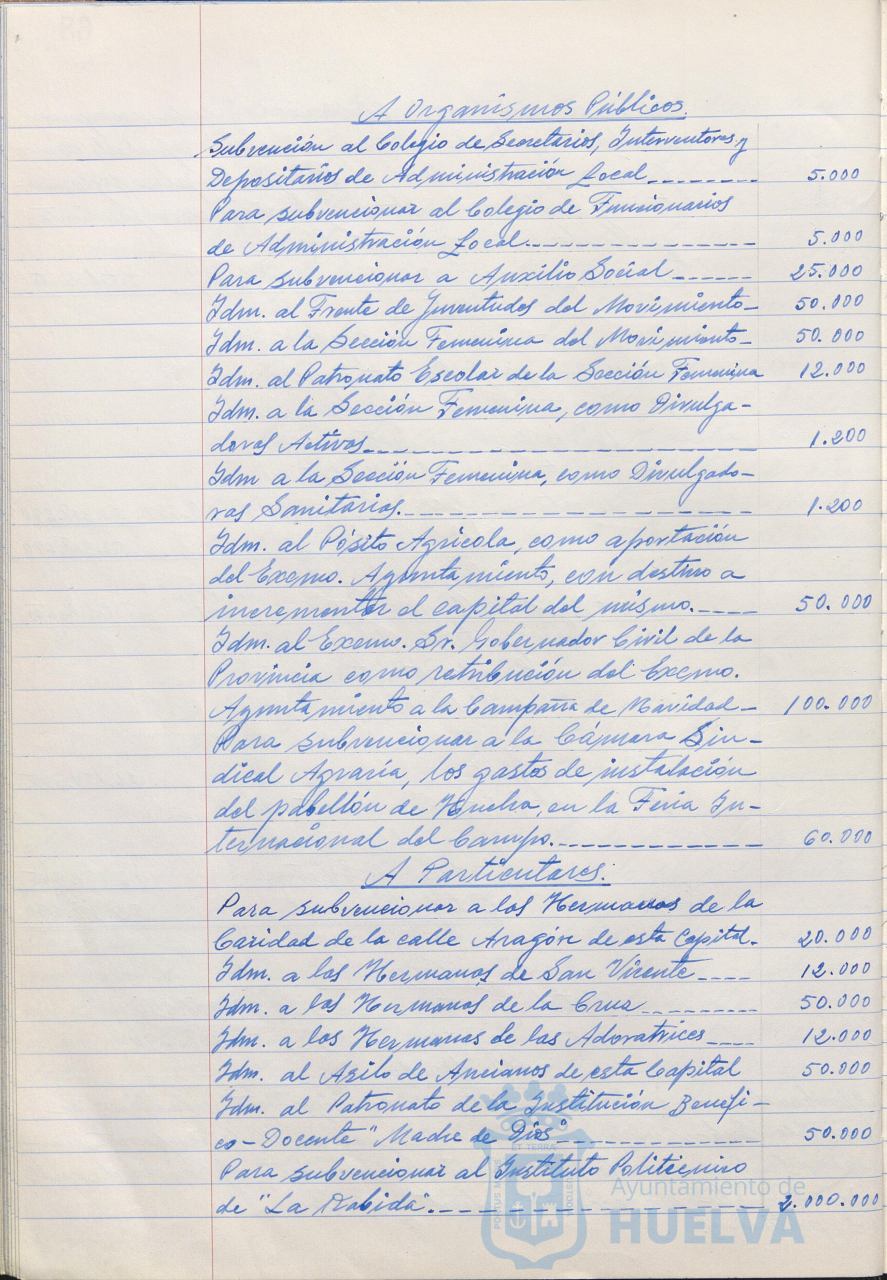 A Organismos Públicos.
Subvención al Colegio de Secretarios, Interventores y
Depositarios de Administración Local ------- 5.000
Para subvencionar al Colegio de Funcionarios
de Administración Local ------- 5.000
Para subvencionar a Auxilio Social ------- 25.000
Idm. al Frente de Juventudes del Movimiento - 50.000
Idm. a la Sección Femenina del Movimiento - 50.000
Idm. al Patronato Escolar de la Sección Femenina 12.000
Idm. a la Sección Femenina, como Divulga-
doras Activas ------- 1.200
Idm a la Sección Femenina, como Divulgado-
ras Sanitarias. ------- 1.200
Idm. al Pósito Agrícola, como aportación
del Excmo. Ayuntamiento, con destino a
incrementar el capital del mismo. ------- 50.000
Idm. al Excmo. Sr. Gobernador Civil de la
Provincia como retribución del Excmo.
Ayuntamiento a la Campaña de Navidad - 100.000
Para subvencionar a la Cámara Sin-
dical Agraria, los gastos de instalación
del pabellón de Huelva, en la Feria In-
ternacional del Campo. ------- 60.000
A Particulares:
Para subvencionar a las Hermanas de la
Caridad de la calle Aragón de esta Capital. 20.000
Idm. a las Hermanas de San Vicente ------- 12.000
Idm. a las Hermanas de la Cruz ------- 50.000
Idm. a las Hermanas de las Adoratrices ------- 12.000
Idm. al Asilo de Ancianos de esta Capital 50.000
Idm. al Patronato de la Institución Benefi-
co-Docente "Madre de Dios" ------- 50.000
Para subvencionar al Instituto Politécnico
de "La Rabida". ------- 2.000.000
Ayuntamiento de
HUELVA